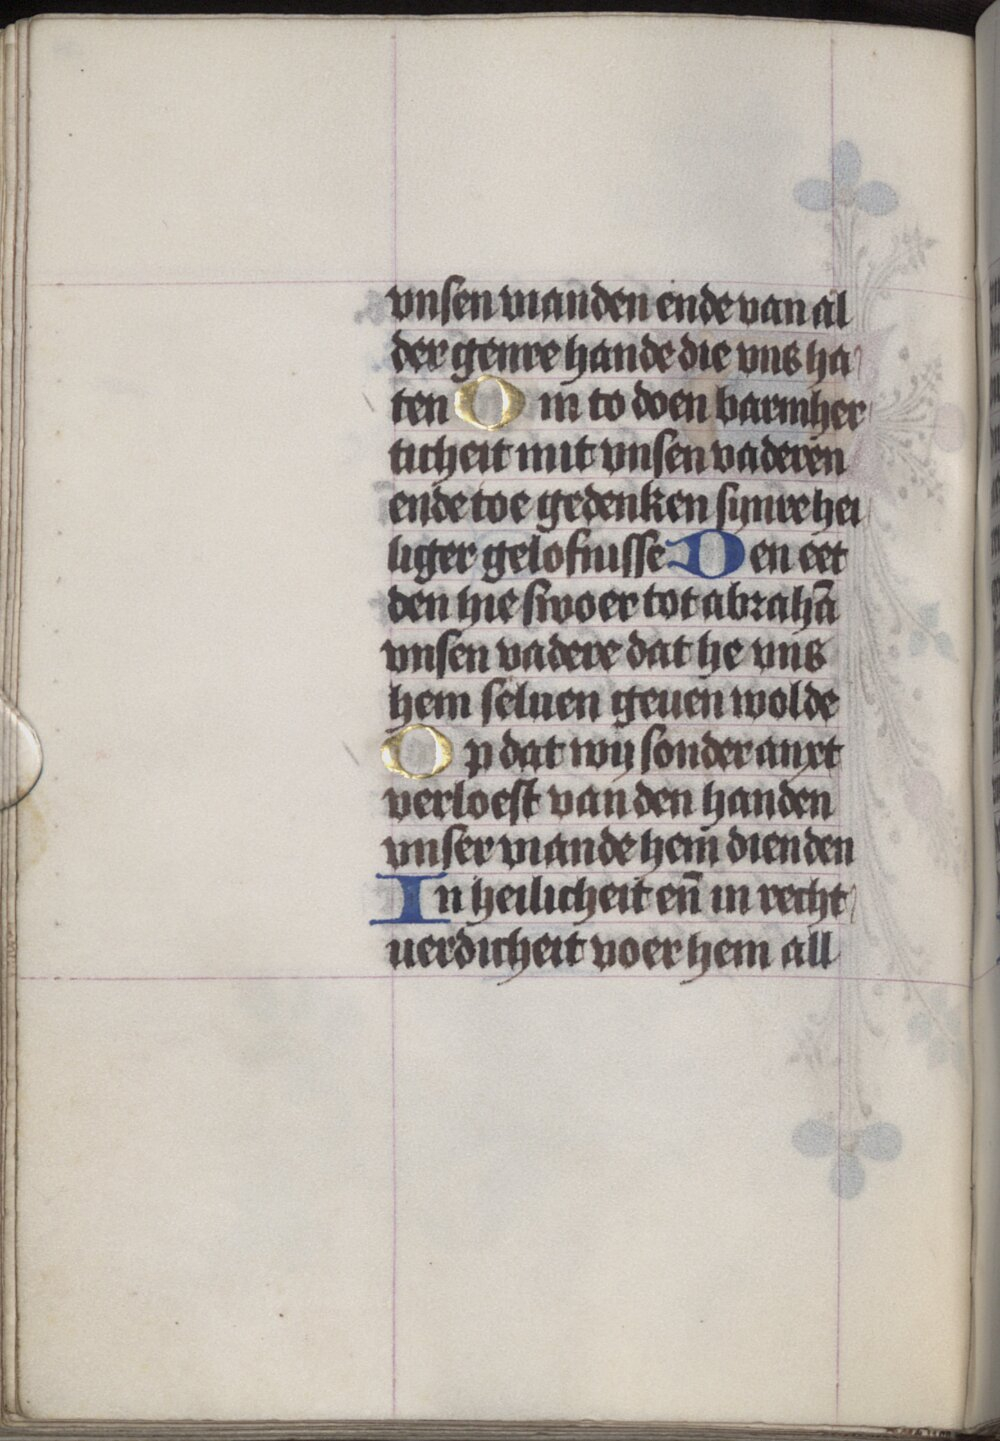 vnsen vianden ende van al
der genre hande die vns ha
ten Om to doen barmher
ticheit mit vnsen vaderen
ende toe gedenken synre hei
liger gelofnisse Den eet
den hie swoer tot abrahā
vnsen vadere dat he vns
hem seluen geuen wolde
Op dat wij sonder anxt
verloest van den handen
vnser viande hem dienden
In heilicheit en̄ in recht
uerdicheit voer hem all